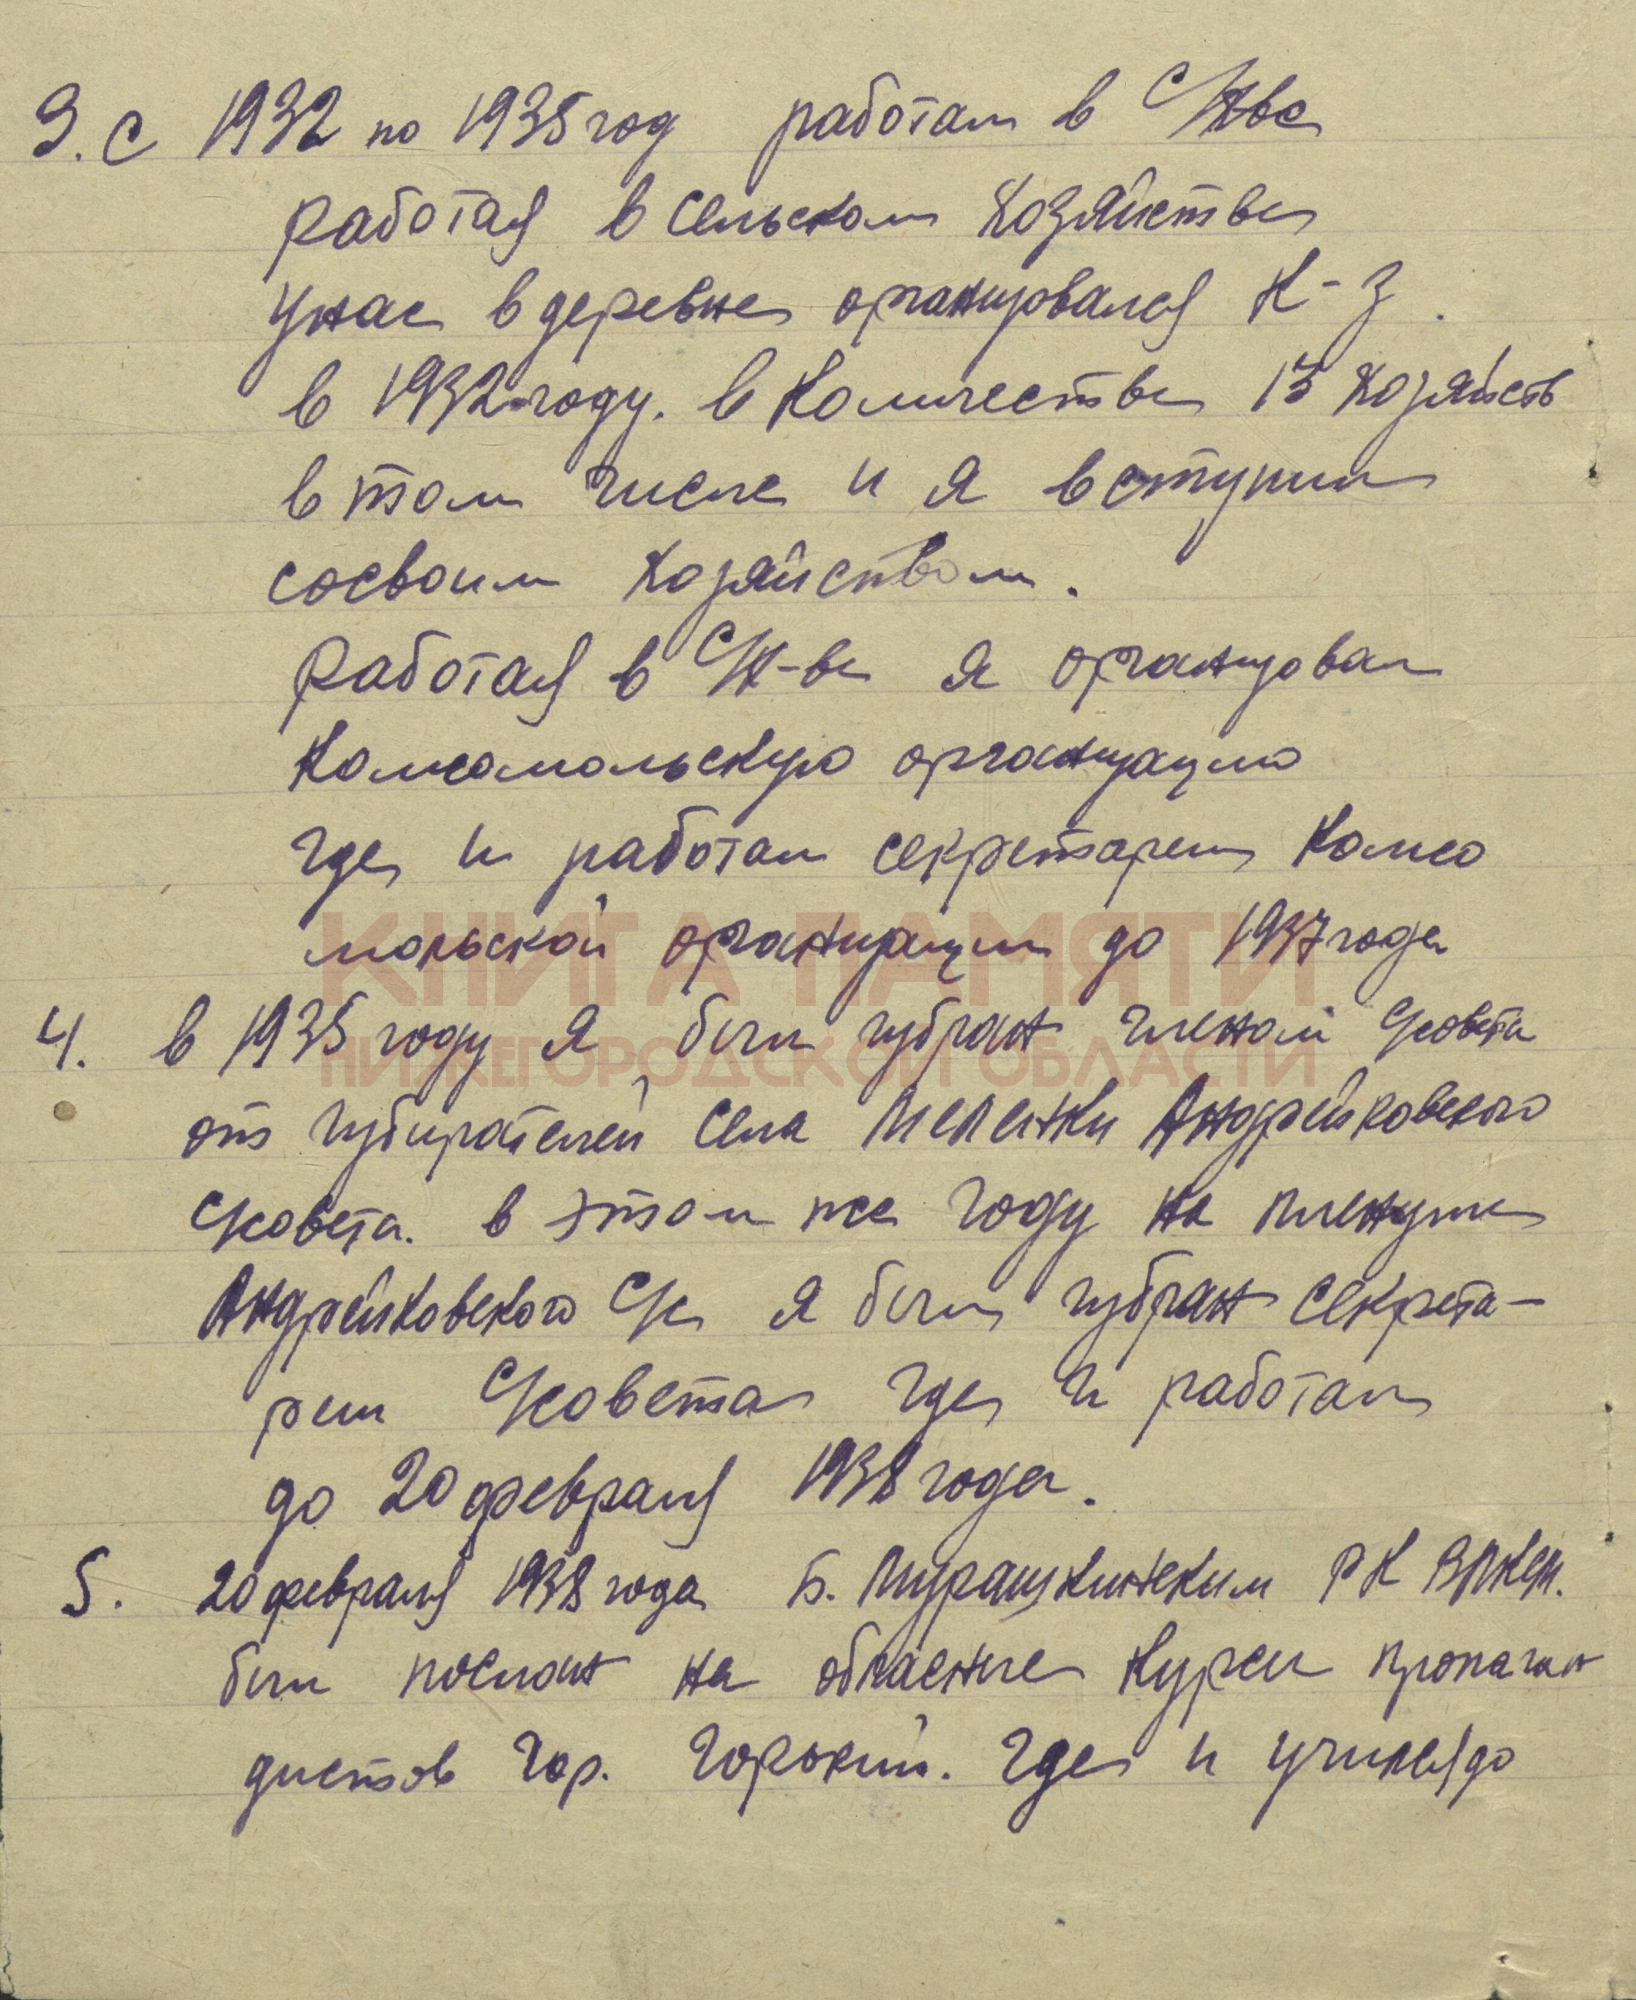 3. С 1932 по 1935 год работал в С/Хве
Работая в сельском хозяйстве
унас в деревне организовался К-з.
в 1932 году. в количестве 13 хозяйств
в том числе и я вступил
сосвоим хозяйством.
Работая в С/Х-ве я организовал
Комсомольскую организацию
где и работал секретарем Комсо
мольской организации до 1937 года
КНИГА ПАМЯТИ
НИЖЕГОРОДСКОЙ ОБЛАСТИ
4. в 1935 году я был избран членом С/совета
от избирателей села Меленки Андрейковского
С/совета. в этом же году на пленуме
Андрейковского С/с я был избран секрета-
рем С/совета где и работал
до 20 февраля 1938 года.
5. 20 февраля 1938 года Б. Мурашкинским РК ВЛКСМ.
был послан на обласные курсы пропаган
дистов гор. Горький. где и учился до